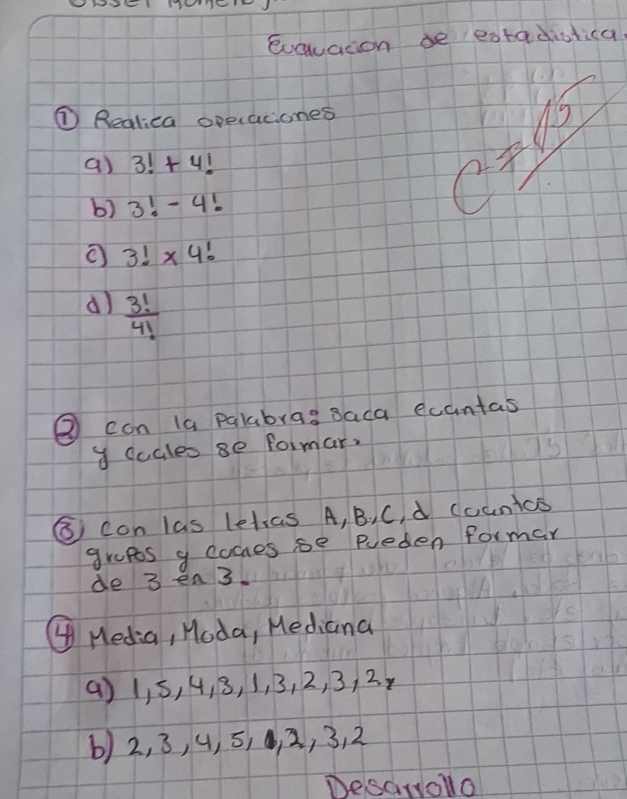 Evaluacion de estadistica.
① Realica operaciones
a) 3! + 4!
b) 3! - 4!
c) 3! x 4!
d) 3!
4!
C = 15
② con la Palabra: saca ecuantas
y cuales se formar.
③ con las letras A, B, C, d cuantos
grupos y cuales se pueden formar
de 3 en 3.
④ Media, Moda, Mediana
a) 1, 5, 4, 3, 1, 3, 2, 3, 2
b) 2, 3, 4, 5, 1, 2, 3, 2
Desarrollo